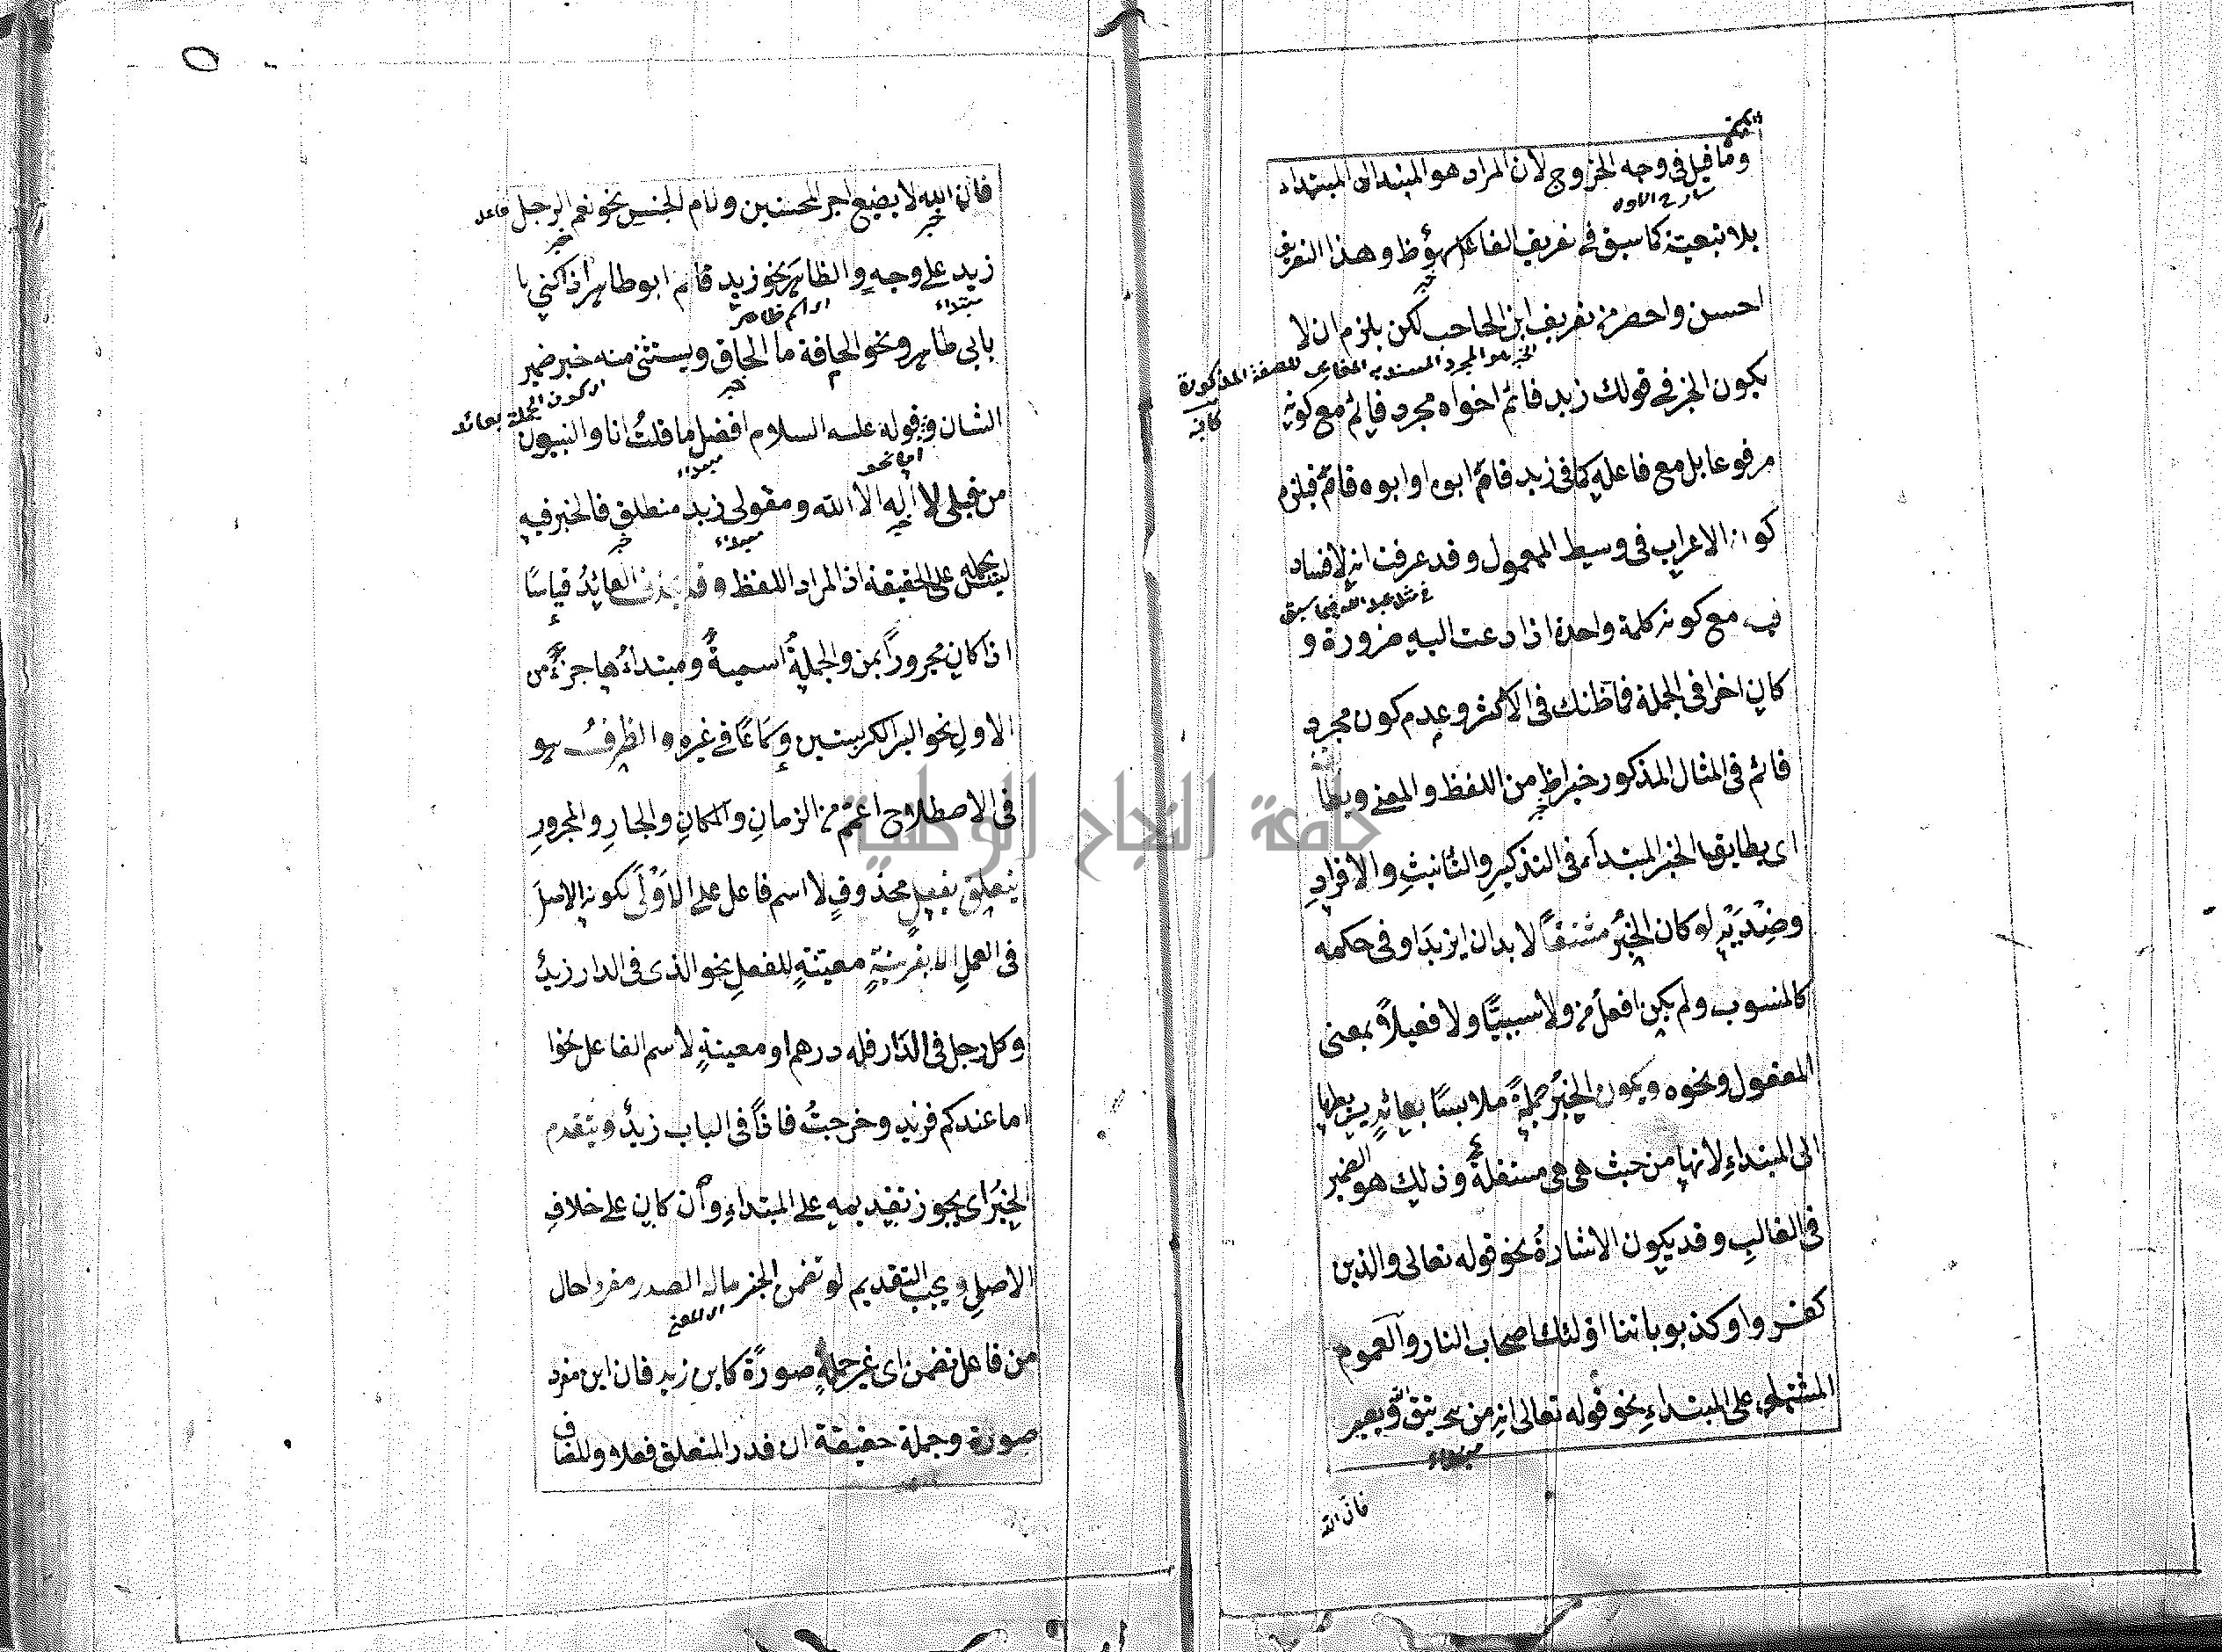 وما قيل في وجه الخروج لأن المراد هو المسند الى المبتداء
شارح الاول
بلا تبعية كما سبق في تعريف الفاعل فهو ظ وهذا التعريف
خبر
احسن واخصر من تعريف ابن الحاجب لكن يلزم ان لا
الخبر هو المجرد المسند به المغاير للصفة المذكورة
كافيه
يكون الخبر في قولك زيد قائم اخواه مجرد قائم مع كونه
مرفوعا بل مع فاعله كما في زيد قائم ابوه او ابوه قائم فيلزم
كون الاعراب في وسيط المعمول وقد عرفت انه لا فساد
في مثل عبد الله فيما سبق
فيه مع كونه كلمة واحدة اذا دعت اليه ضرورة و
كان اخرا في الجملة فما ظنك في الاكثر وعدم كون مجرد
قائم في المثال المذكور خبرا ظ من اللفظ والمعنى
خبر
اى يطابق الخبر المبتداء في التذكير والتأنيث والافراد
وضديه لو كان الخبر مشتقا لا بدان ازيد او في حكمه
كالمنسوب ولم يكن افعل من ولا سببيًّا ولا فعيلاً بمعنى
المفعول ونحوه ويكون الخبر جملة ملابسًا بعائد يربطها
الى المبتداء لانها من حيث هى هى مستقلة وذلك هو الضمير
في الغالب وقد يكون الاشارة نحو قوله تعالى والذين
كفروا وكذبوا باياتنا اولئك اصحاب النار والعموم
المشتمل على المبتداء نحو قوله تعالى انه من يتق ويصبر
مبتداء
فان الله
فان الله لا يضيع اجر المحسنين ولام الجنس نحو نعم الرجل
فاعل
خبر
خبر
زيد على وجه والظاهر نحو زيد قام ابو طاهر اذا كنى
مبتداء
اى اسم ظاهر
بابى طاهر ونحو الحاقة ما الحاقة ويستثنى منه خبر ضمير
خبر
اى كون الجملة بعائد
الشان وقوله عليه السلام افضل ما قلتُ انا والنبيون
مبتداء
اى نحو
من قبلى لا اله الا الله ومقولى زيد منطلق فالخبر فيه
خبر
مبتداء
خبر
على الحقيقة اذ المراد اللفظ وقد يحذف العائدُ قياسًا
اذا كان مجروراً بمن والجملةُ اسميةٌ ومبتداءُها جزءٌ من
الاول نحو البر الكر بستين وسماعًا في غيره والظرفُ هو
في الاصطلاح اعم من الزمانِ والمكانِ والجارِ والمجرورِ
يتعلق بفعلٍ محذوفٍ لا اسم فاعل على الاَوْلَى لكونه الاصل
في العمل الا بقرينةٍ معينةٍ للفعل نحو الذى في الدار زيدٌ
وكل رجل في الدار فله درهم او معينةٍ لاسم الفاعل نحو
اما عندكم فزيد وخرجتُ فاذًا في الباب زيدٌ ويتقدم
الخبرُ اى يجوز تقديمه على المبتداء وان كان على خلافِ
الاصلِ ويجب التقديم لو تضمن الخبر ماله الصدر مفردا حال
اى المعنى
من فاعل تضمن اى غير جملةٍ صورةً كاين زيد فان اين مفرد
صورة وجملة حقيقة ان قدر المتعلق فعلا وللمضاف
جامعة النجاح الوطنية